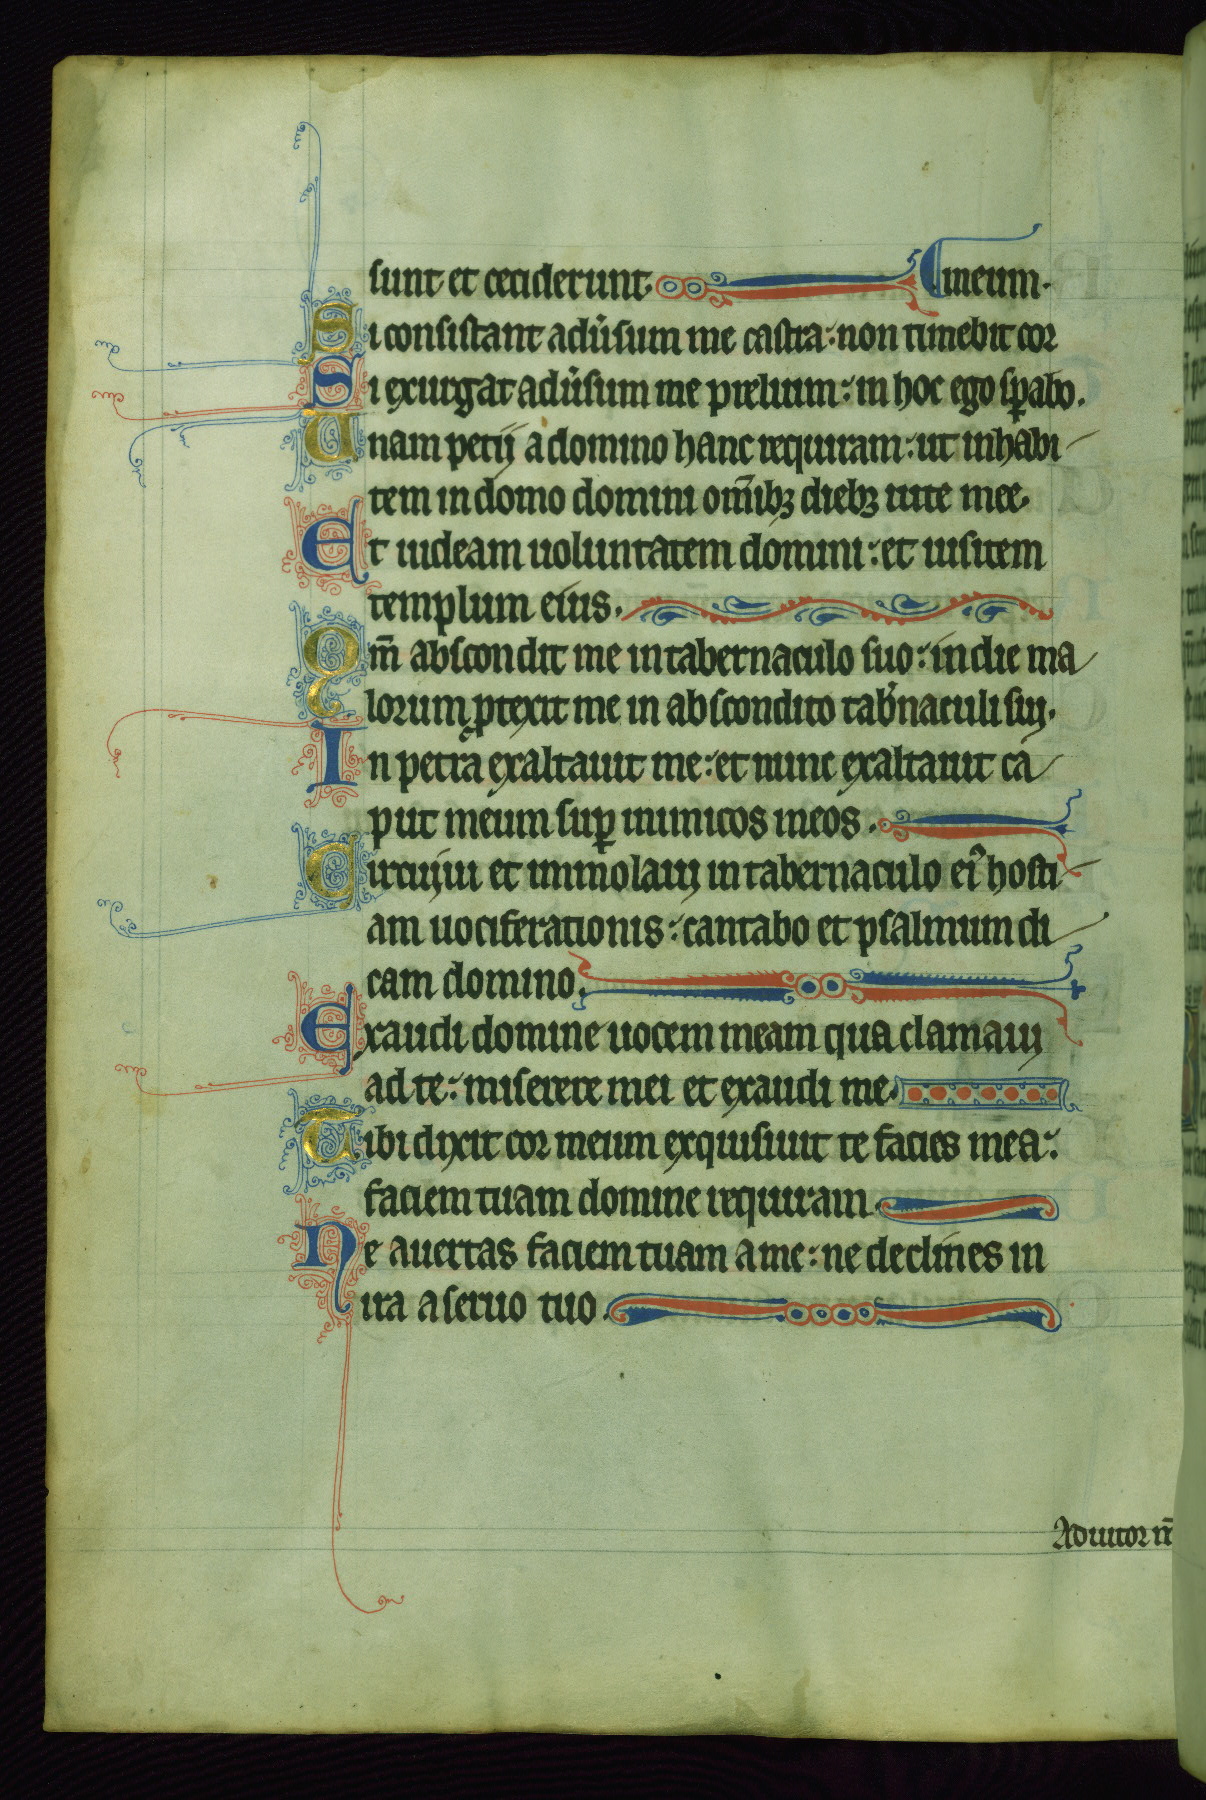 sunt et ceciderunt meum.
Si consistant adu̾sum me castra: non timebit cor
Si exurgat adu̾sum me prelium: in hoc ego sꝑabo.
Unam petij a domino hanc requiram: ut inhabi
tem in domo domini om̅ibꝫ diebꝫ uite mee.
Et uideam uoluntatem domini: et uisitem
templum eius.
Qm̅ abscondit me in tabernaculo suo: in die ma
lorum ꝓtexit me in abscondito tab̾naculi sui.
In petra exaltauit me: et nunc exaltauit ca
put meum suꝑ inimicos meos.
Circuiui et immolaui in tabernaculo ei᾽ hosti
am uociferationis: cantabo et psalmum di
cam domino.
Exaudi domine uocem meam qua clamaui
ad te: miserere mei et exaudi me.
Tibi dixit cor meum exquisiuit te facies mea:
faciem tuam domine requiram.
Ne auertas faciem tuam a me: ne declines in
ira a seruo tuo.
Adiutor m̅